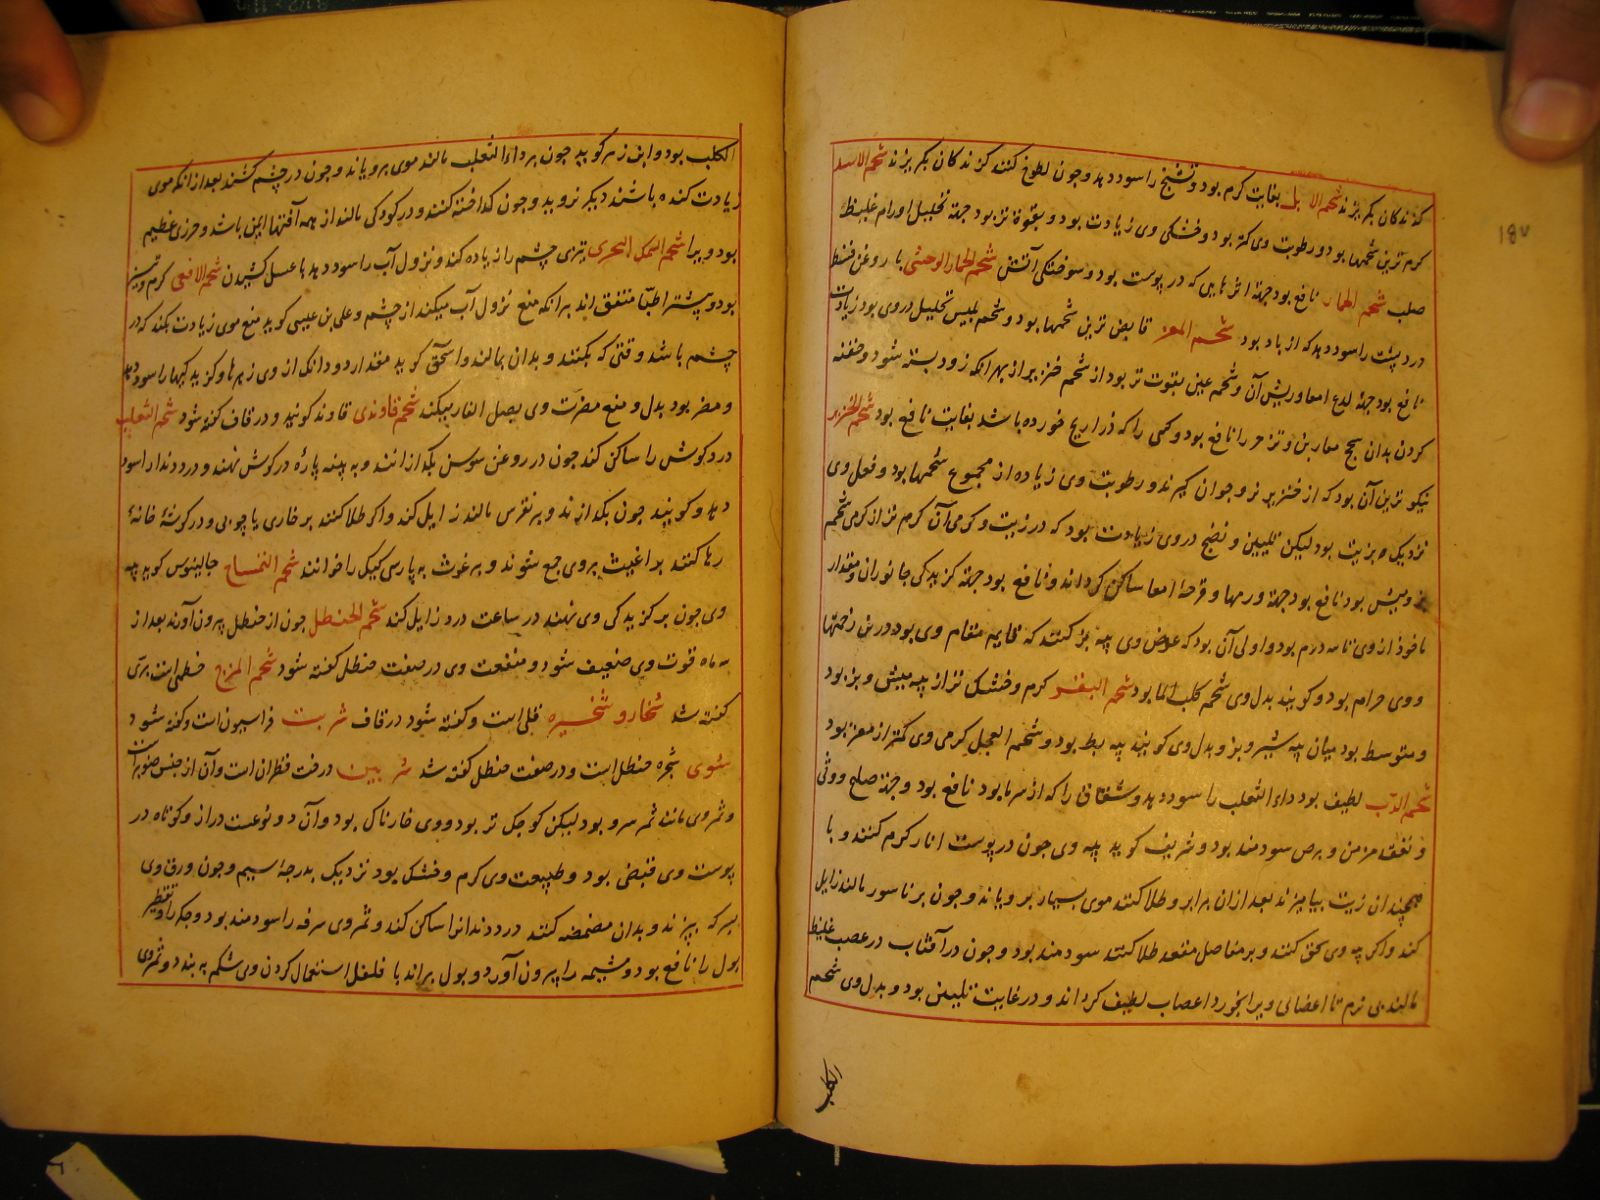 کزندکان بگریزند شحم الابل بغایت کرم بود و تشنج را سود دهد و چون لطوخ کنند کزندکان بگریزند شحم الاسد
کرم ترین شحمها بود و رطوبت وی کمتر بود و خشکی وی زیادت بود و بقوة تر بود جهة تحلیل اورام غلیظ
صلب شحم الحمار نافع بود جهة اثرهایی که در پوست بود و سوختکی آتش شحم الحمار الوحشی با روغن قسط
درد پشت را سود دهد که از باد بود شحم المعز قابض ترین شحمها بود و شحم تیس تحلیل در وی بود زیادت
نافع بود جهة لدع امعا و ریش آن و شحم عنز بقوت تر بود از شحم خنزیر از بهر آنکه زود بسته شود و حقنه
کردن بدان سحج معا و زحیر را نافع بود و کسی را که ذراریح خورده باشد بغایت نافع بود شحم الخنزیر
نیکوترین آن بود که از خنزیر نر و جوان کیرند و رطوبت وی زیاده از مجموع شحمها بود و فعل وی
نزدیک به زیت بود لیکن تلیین و نضج در وی زیادت بود که در زیت و کرمی آن کرم تر از کرمی شحم
بز و میش بود نافع بود جهة ورمها و قرحهٔ امعا ساکن کرداند و نافع بود جهة کزیدکی جانوران و مقدار
ماخوذ از وی تا سه درم بود و اولی آن بود که عوض وی پیه بز کنند که قایم مقام وی بود در زخمها
و وی حرام بود و کویند بدل وی شحم کلب الما بود شحم البقر کرم و خشک تر از پیه میش و بز بود
و متوسط بود میان پیه شیر و بز و بدل وی کویند پیه بط بود و شحم العجل کرمی وی کمتر از معز بود
شحم الدب لطیف بود داء الثعلب را سود دهد و شقاقی را که از سرما بود نافع بود و جهة صلع و وثی
و نفقد مزمن و برص سودمند بود و شریف کوید پیه وی چون در پوست انار کرم کنند و با
همچندان زیت بیامیزند بعد از آن بر ابرو طلا کنند موی سیاه برویاند و چون بر ناسور مالند زایل
کند و اکر پیه وی حق کنند و بر مفاصل مقعد طلا کنند سودمند بود و چون در آفتاب در عصب غلیظ
مالند بی نرم تا اعضای ویرا بخورد اعصاب لطیف کرداند و در غایت تلیین بود و بدل وی شحم
الکلب
۱۸۷
الکلب بود و ابن زهر کوید چون بر داء الثعلب مالند موی برویاند و چون در چشم کشند بعد از آنکه موی
زیادت کنده باشند دیکر نروید و چون کداخته کنند و در کودکی مالند از همه آفتها ایمن باشد و حرزی عظیم
بود ویرا شحم السمک البحری تیزی چشم را زیاده کند و نزول آب را سود دهد با عسل کشیدن شحم الافعی کرم و تیز
بود و بیشتر اطبا متفق اند بر آنکه منع نزول آب میکند از چشم و علی بن عیسی کوید منع موی زیادت بکند که در
چشم باشد وقتی که بکنند و بدان بمالند و اسحق کوید مقدار دو دانک از وی زهرها و کزیدکیها را سود دهد
و مضر بود بدل و منع مضرت وی بصل الفار میکند شحم قاوندی قاوند کویند و در قاف کفته شود شحم الثعلب
درد کوش را ساکن کند چون در روغن سوسن بکدازانند و به پنبه پارهٔ در کوش نهند و درد دندان را سود
دهد و کویند چون بکدازند و بر نقرس مالند زایل کند و اکر طلا کنند بر خاری یا چوبی و در کوشهٔ خانهٔ
رها کنند براغیث بر وی جمع شوند و برغوث به پارسی کیک را خوانند شحم التمساح جالینوس کوید پیه
وی چون بر کزیدکی وی نهند در ساعت درد زایل کند شحم الحنظل چون از حنظل بیرون آورند بعد از
سه ماه قوت وی ضعیف شود و منفعت وی در صفت حنظل کفته شود شحم المرج خطمی است بری
کفته شد شخار و شخیره قلی است و کفته شود در قاف شربت فراسیون است و کفته شود
شوی شجره حنظل است و در صفت حنظل کفته شد شربین درخت قطران است و آن از جنس صنوبر است
و ثمر وی مانند ثمر سرو بود لیکن کوچک تر بود و وی خارناک بود و آن دو نوعست دراز و کوتاه در
پوست وی قبضی بود و طبیعت وی کرم و خشک بود نزدیک بدرجهٔ سیم و چون ورق وی
بسرکه بپزند و بدان مضمضه کنند درد دندانرا ساکن کند و ثمر وی سرفه را سودمند بود و جکر را و تقطیر
بول را نافع بود و مشیمه را بیرون آورد و بول براند با فلفل استعمال کردن وی شکم به بندد و ثمر وی